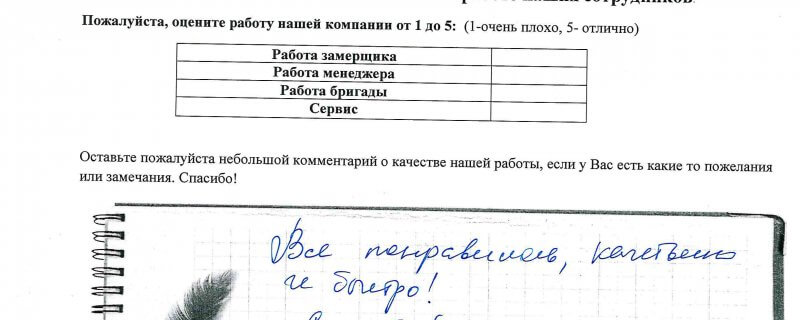 сотрудников.
Пожалуйста, оцените работу нашей компании от 1 до 5: (1-очень плохо, 5- отлично)
Работа замерщика
Работа менеджера
Работа бригады
Сервис
Оставьте пожалуйста небольшой комментарий о качестве нашей работы, если у Вас есть какие то пожелания
или замечания. Спасибо!
Все понравилось, качественно
и быстро!